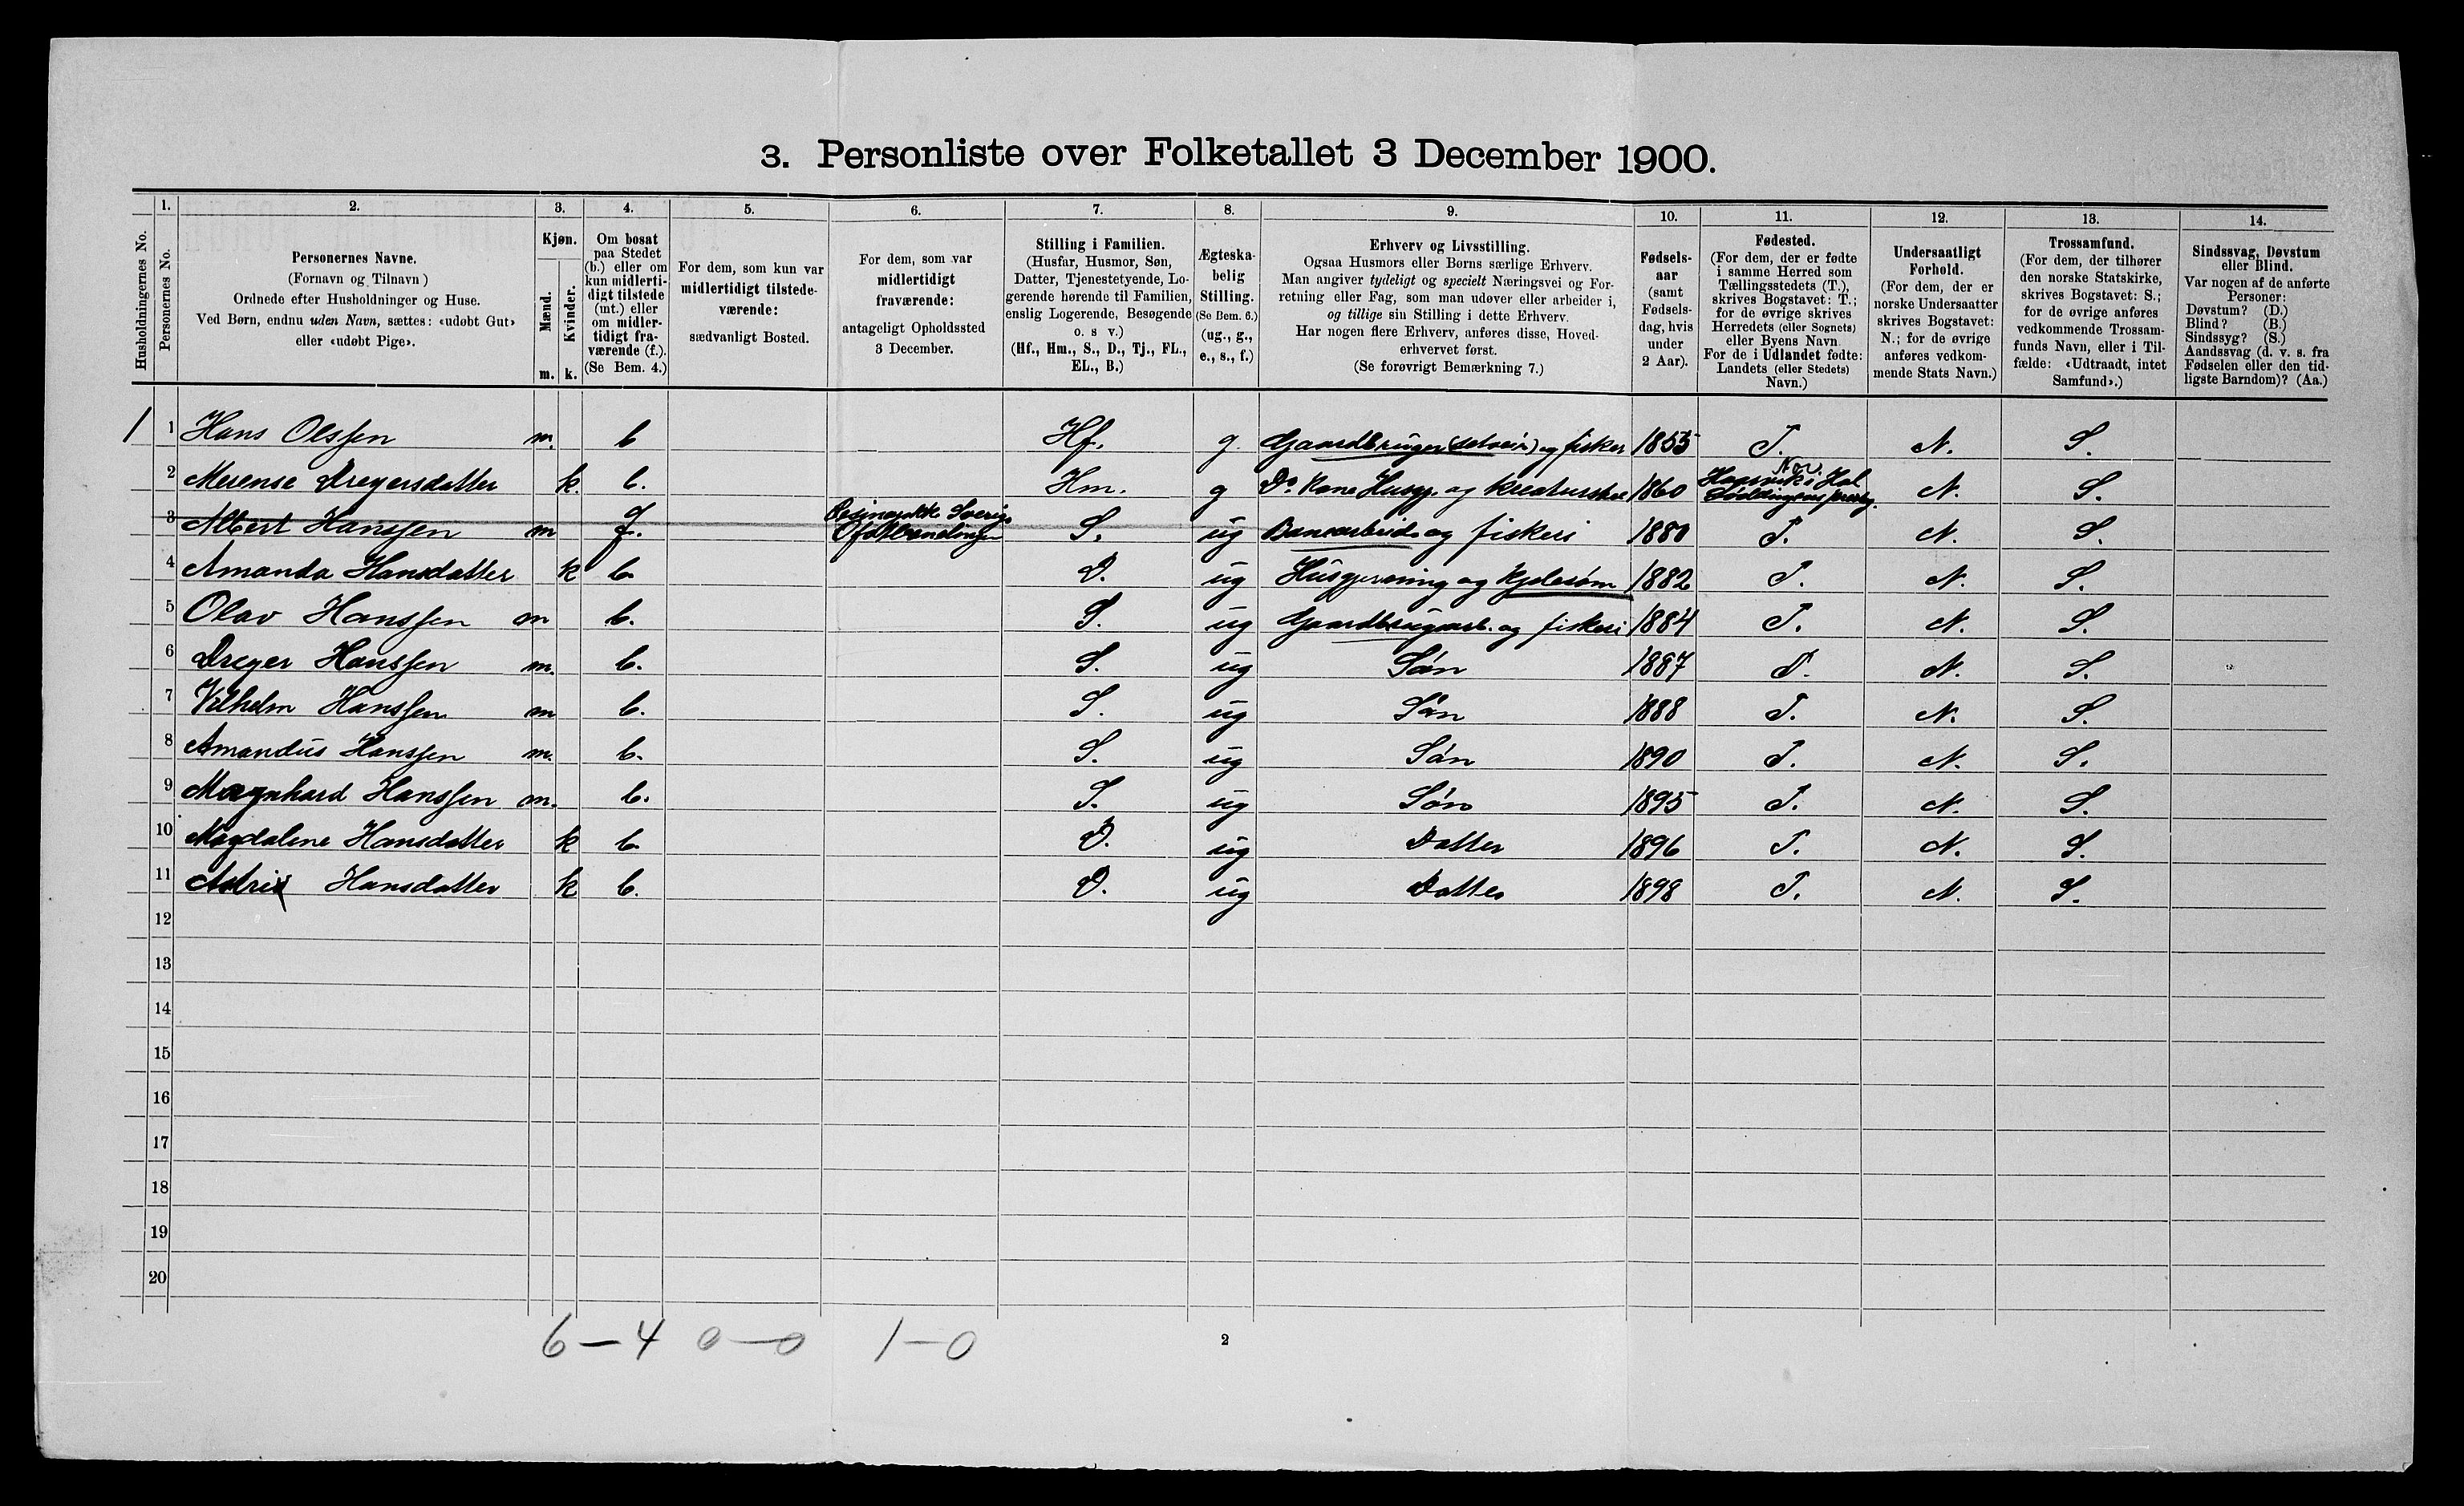 3. Personliste over Folketallet 3 December 1900.
Husholdningernes No.
1.
Personernes No.
2.
Personernes Navne.
(Fornavn og Tilnavn)
Ordnede efter Husholdninger og Huse.
Ved Børn, endnu uden Navn, sættes: «udøbt Gut»
eller «udøbt Pige».
3.
Kjøn.
Mænd.
Kvinder.
m. k.
4.
Om bosat
paa Stedet
(b.) eller om
kun midlerti-
digt tilstede
(mt.) eller
om midler-
tidigt fra-
værende (f.).
(Se Bem. 4.)
5.
For dem, som kun var
midlertidigt tilstede-
værende:
sædvanligt Bosted.
6.
For dem, som var
midlertidigt
fraværende:
antageligt Opholdssted
3 December.
7.
Stilling i Familien.
(Husfar, Husmor, Søn,
Datter, Tjenestetyende, Lo-
gerende hørende til Familien,
enslig Logerende, Besøgende
o. s v.)
(Hf., Hm., S., D., Tj., FL.,
EL., B.)
8.
Ægteska-
belig
Stilling.
(Se Bem. 6.)
(ug., g.,
e., s., f.)
9.
Erhverv og Livsstilling.
Ogsaa Husmors eller Børns særlige Erhverv.
Man angiver tydeligt og specielt Næringsvei og For-
retning eller Fag, som man udøver eller arbeider i,
og tillige sin Stilling i dette Erhverv.
Har nogen flere Erhverv, anføres disse, Hoved-
erhvervet først.
(Se forøvrigt Bemærkning 7.)
10.
Fødsels-
aar
(samt
Fødsels-
dag, hvis
under
2 Aar).
11.
Fødested.
(For dem, der er fødte
i samme Herred som
Tællingsstedets (T.),
skrives Bogstavet: T.;
for de øvrige skrives
Herredets (eller Sognets)
eller Byens Navn
For de i Udlandet fødte:
Landets (eller Stedets)
Navn.)
12.
Undersaatligt
Forhold.
(For dem, der er
norske Undersaatter
skrives Bogstavet:
N.; for de øvrige
anføres vedkom-
mende Stats Navn.)
13.
Trossamfund.
(For dem, der tilhører
den norske Statskirke,
skrives Bogstavet: S.;
for de øvrige anføres
vedkommende Trossam-
funds Navn, eller i Til-
fælde: «Udtraadt, intet
Samfund».)
14.
Sindssvag, Døvstum
eller Blind.
Var nogen af de anførte
Personer:
Døvstum? (D.)
Blind? (B.)
Sindssyg? (S.)
Aandssvag (d. v. s. fra
Fødselen eller den tid-
ligste Barndom)? (Aa.)
1 1 Hans Olssen m. b Hf. g. Gaardbruger (selveier) og fisker 1855 T. N. S.
2 Merense Dreyersdatter k. b. Hm. g Do Kone Husgj. og kreaturstel 1860 Nor. N. S.
3 Albert Hanssen m f. Ofotbanelinjen S. ug Banearbeid. og fiskeri 1880 T. N. S.
4 Amanda Hansdatter k b. D. ug Husgjerning og Kjolesøm 1882 T. N. S.
5 Olav Hanssen m b. S. ug Gaardbrugsarb. og fiskeri 1884 T. N. S.
6 Dreyer Hanssen m. b. S. ug Søn 1887 T. N. S.
7 Vilhelm Hanssen m b. S. ug Søn 1888 T. N. S.
8 Amandus Hanssen m. b. S. ug Søn 1890 T. N. S.
9 Magnhard Hanssen m. b. S. ug Søn 1895 T. N. S.
10 Magdalene Hansdatter k b. D. ug Datter 1896 T. N. S.
11 Astrid Hansdatter k b. D. ug Datter 1898 T. N. S.
12
13
14
15
16
17
18
19
20
6 – 4 0 – 0 1 – 0
2